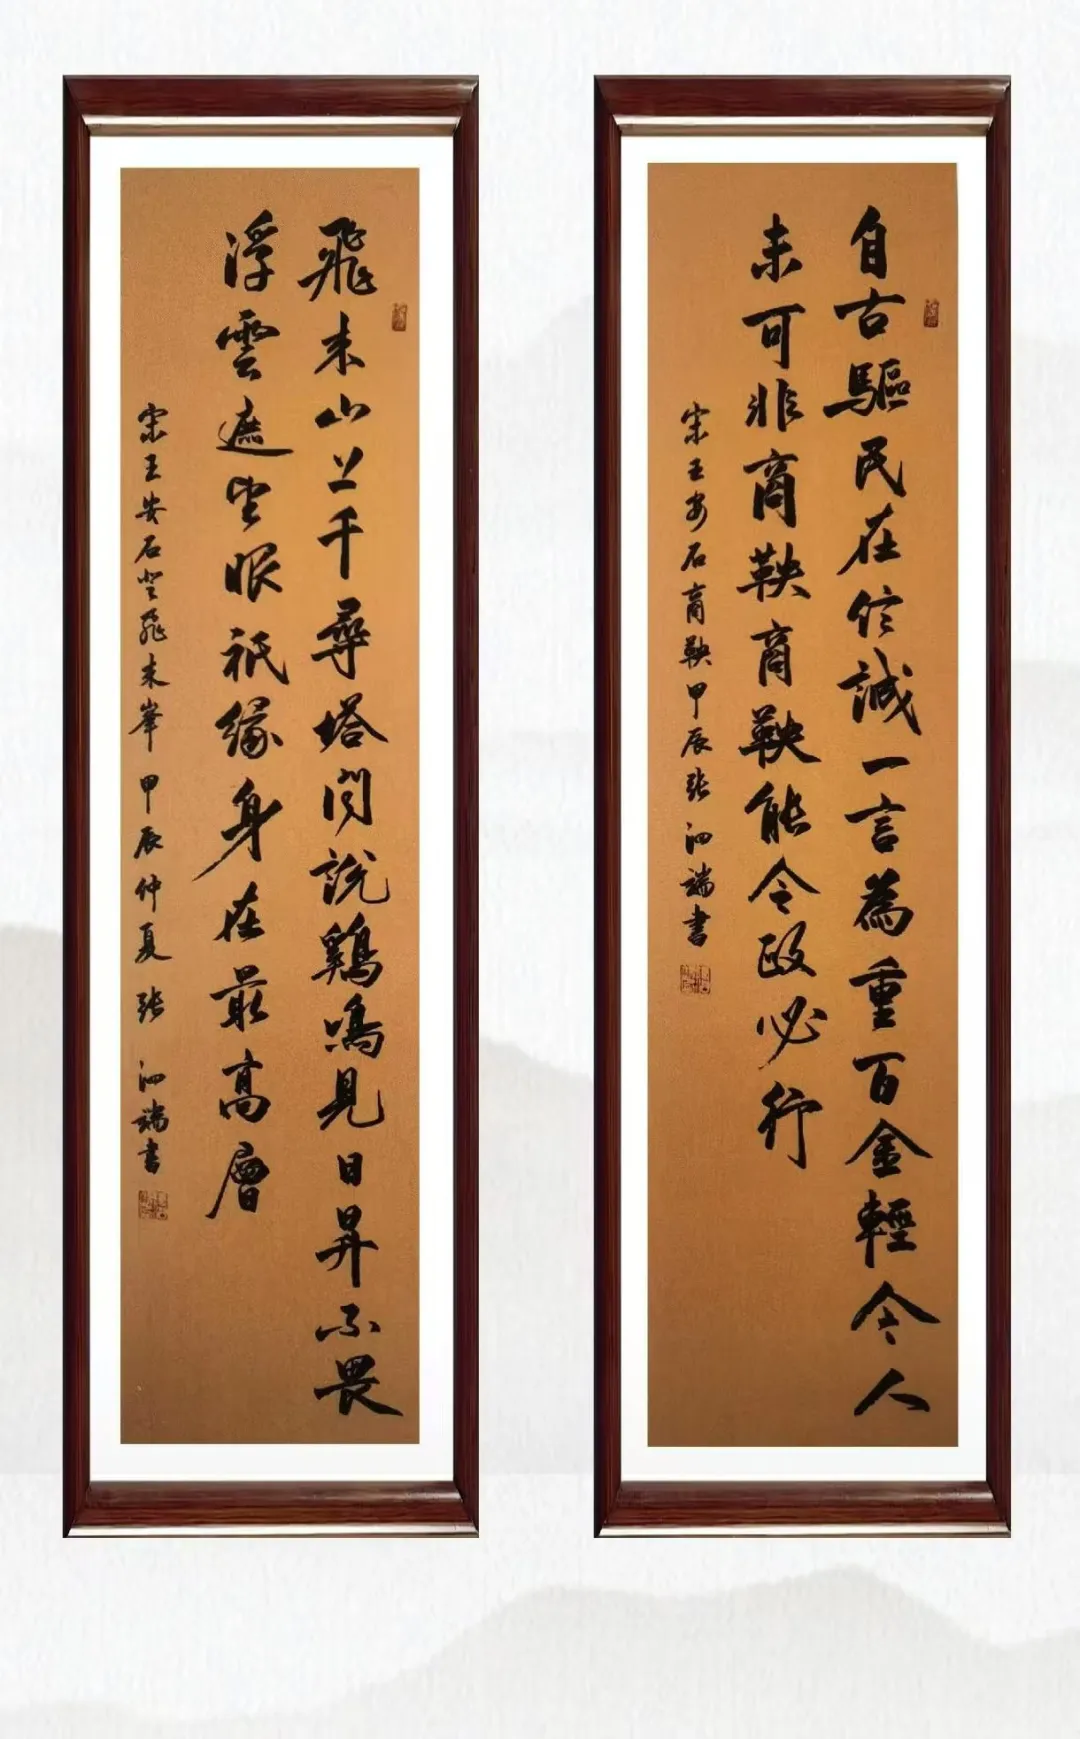 自古驅民在信誠一言為重百金輕今人
未可非商鞅商鞅能令政必行
宋王安石商鞅甲辰張泗端書
飛来山上千尋塔聞說鷄鳴見日昇不畏
浮雲遮望眼祇緣身在最高層
宋王安石登飛来峯甲辰仲夏張泗端書